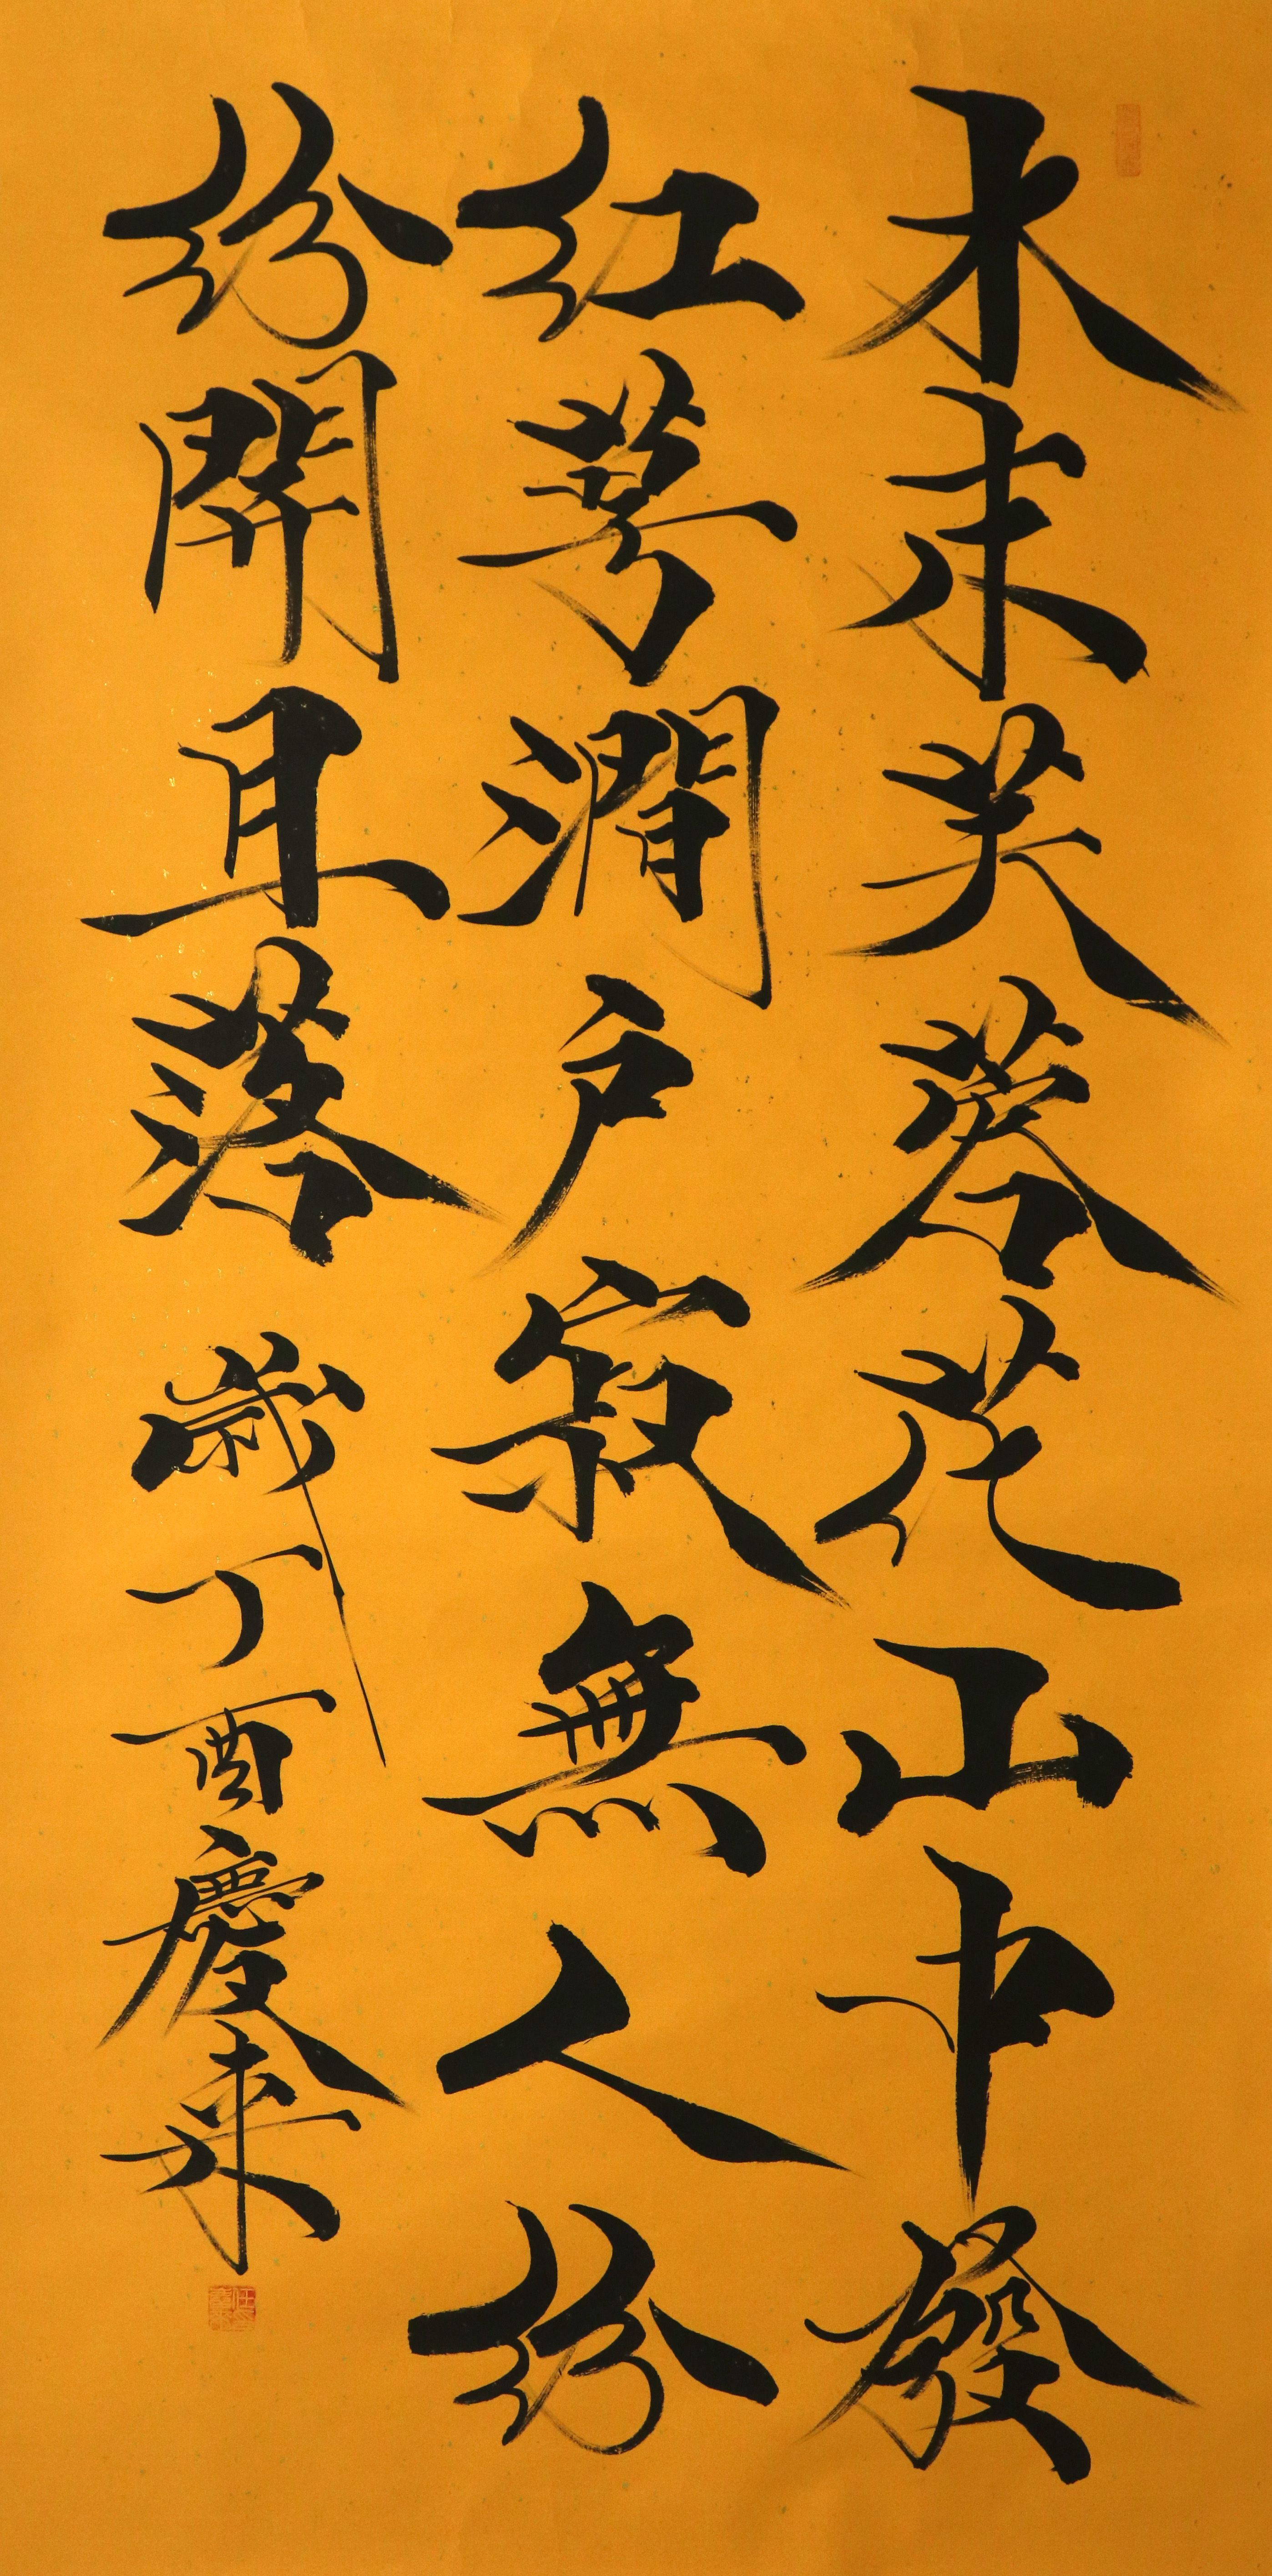 木末芙蓉花山中發
紅萼澗戶寂無人紛
紛開且落
歲丁酉慶來